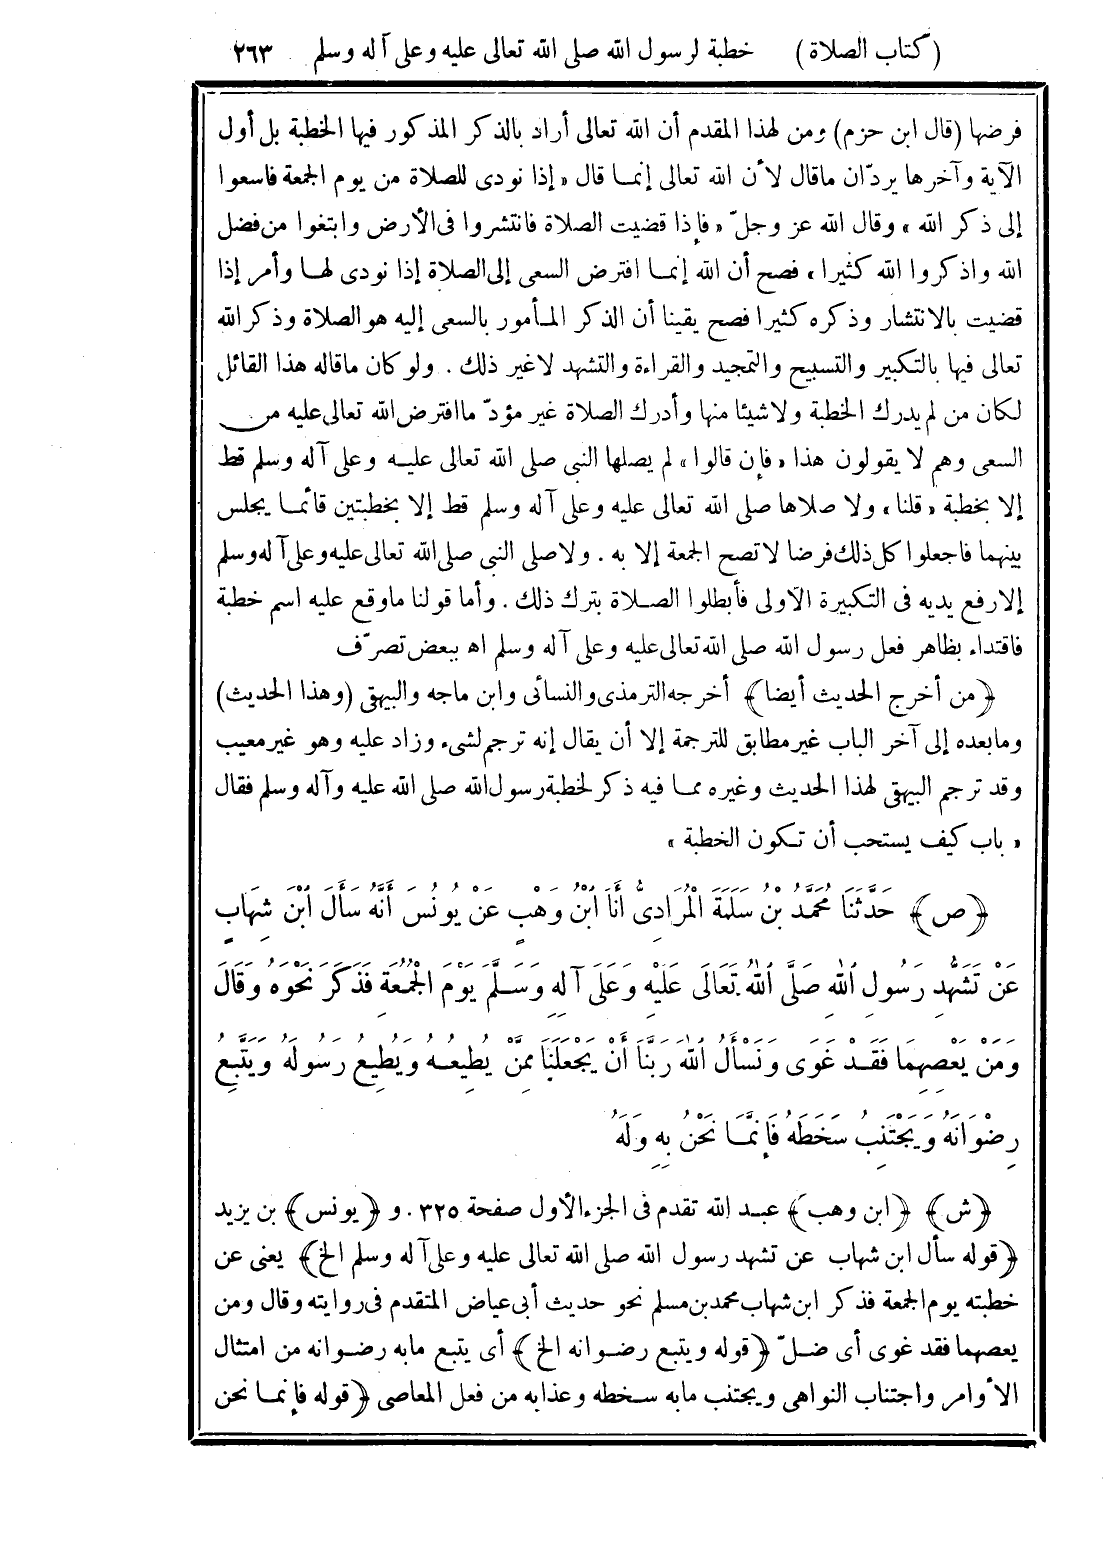 (كتاب الصلاة) خطبة لرسول الله صلى الله تعالى عليه وعلى آله وسلم ٢٦٣
فرضها (قال ابن حزم) ومن لهذا المقدم أن الله تعالى أراد بالذكر المذكور فيها الخطبة بل أول
الآية وآخرها يردّان ماقال لأن الله تعالى إنما قال «إذا نودى للصلاة من يوم الجمعة فاسعوا
إلى ذكر الله» وقال الله عز وجلّ «فإذا قضيت الصلاة فانتشروا فى الأرض وابتغوا من فضل
الله واذكروا الله كثيرا» فصح أن الله إنما افترض السعى إلى الصلاة إذا نودى لها وأمر إذا
قضيت بالانتشار وذكره كثيرا فصح يقينا أن الذكر المأمور بالسعى إليه هو الصلاة وذكر الله
تعالى فيها بالتكبير والتسبيح والتمجيد والقراءة والتشهد لاغير ذلك . ولو كان ماقاله هذا القائل
لكان من لم يدرك الخطبة ولاشيئا منها وأدرك الصلاة غير مؤدّ ماافترض الله تعالى عليه من
السعى وهم لا يقولون هذا «فإن قالوا» لم يصلها النبى صلى الله تعالى عليه وعلى آله وسلم قط
إلا بخطبة «قلنا» ولا صلاها صلى الله تعالى عليه وعلى آله وسلم قط إلا بخطبتين قائما يجلس
بينهما فاجعلوا كل ذلك فرضا لاتصح الجمعة إلا به . ولاصلى النبى صلى الله تعالى عليه وعلى آله وسلم
إلارفع يديه فى التكبيرة الأولى فأبطلوا الصلاة بترك ذلك . وأما قولنا ماوقع عليه اسم خطبة
فاقتداء بظاهر فعل رسول الله صلى الله تعالى عليه وعلى آله وسلم اه ببعض تصرّف
﴿من أخرج الحديث أيضا﴾ أخرجه الترمذى والنسائى وابن ماجه والبيهقى (وهذا الحديث)
ومابعده إلى آخر الباب غير مطابق للترجمة إلا أن يقال إنه ترجم لشىء وزاد عليه وهو غير معيب
وقد ترجم البيهقى لهذا الحديث وغيره مما فيه ذكر لخطبة رسول الله صلى الله عليه وآله وسلم فقال
«باب كيف يستحب أن تكون الخطبة»
﴿ص﴾ حَدَّثَنَا مُحَمَّدُ بْنُ سَلَمَةَ الْمُرَادِىُّ أَنَا ابْنُ وَهْبٍ عَنْ يُونُسَ أَنَّهُ سَأَلَ ابْنَ شِهَابٍ
عَنْ تَشَهُّدِ رَسُولِ اللهِ صَلَّى اللهُ تَعَالَى عَلَيْهِ وَعَلَى آلِهِ وَسَلَّمَ يَوْمَ الْجُمُعَةِ فَذَكَرَ نَحْوَهُ وَقَالَ
وَمَنْ يَعْصِهِمَا فَقَدْ غَوَى وَنَسْأَلُ اللهَ رَبَّنَا أَنْ يَجْعَلَنَا مِمَّنْ يُطِيعُهُ وَيُطِيعُ رَسُولَهُ وَيَتَّبِعُ
رِضْوَانَهُ وَيَجْتَنِبُ سَخَطَهُ فَإِنَّمَا نَحْنُ بِهِ وَلَهُ
﴿ش﴾ ﴿ابن وهب﴾ عبد الله تقدم فى الجزء الأول صفحة ٣٢٥. و﴿يونس﴾ بن يزيد
﴿قوله سأل ابن شهاب عن تشهد رسول الله صلى الله تعالى عليه وعلى آله وسلم الخ﴾ يعنى عن
خطبته يوم الجمعة فذكر ابن شهاب محمد بن مسلم نحو حديث أبى عياض المتقدم فى روايته وقال ومن
يعصهما فقد غوى أى ضلّ ﴿قوله ويتبع رضوانه الخ﴾ أى يتبع مابه رضوانه من امتثال
الأوامر واجتناب النواهى ويجتنب مابه سخطه وعذابه من فعل المعاصى ﴿قوله فإنما نحن